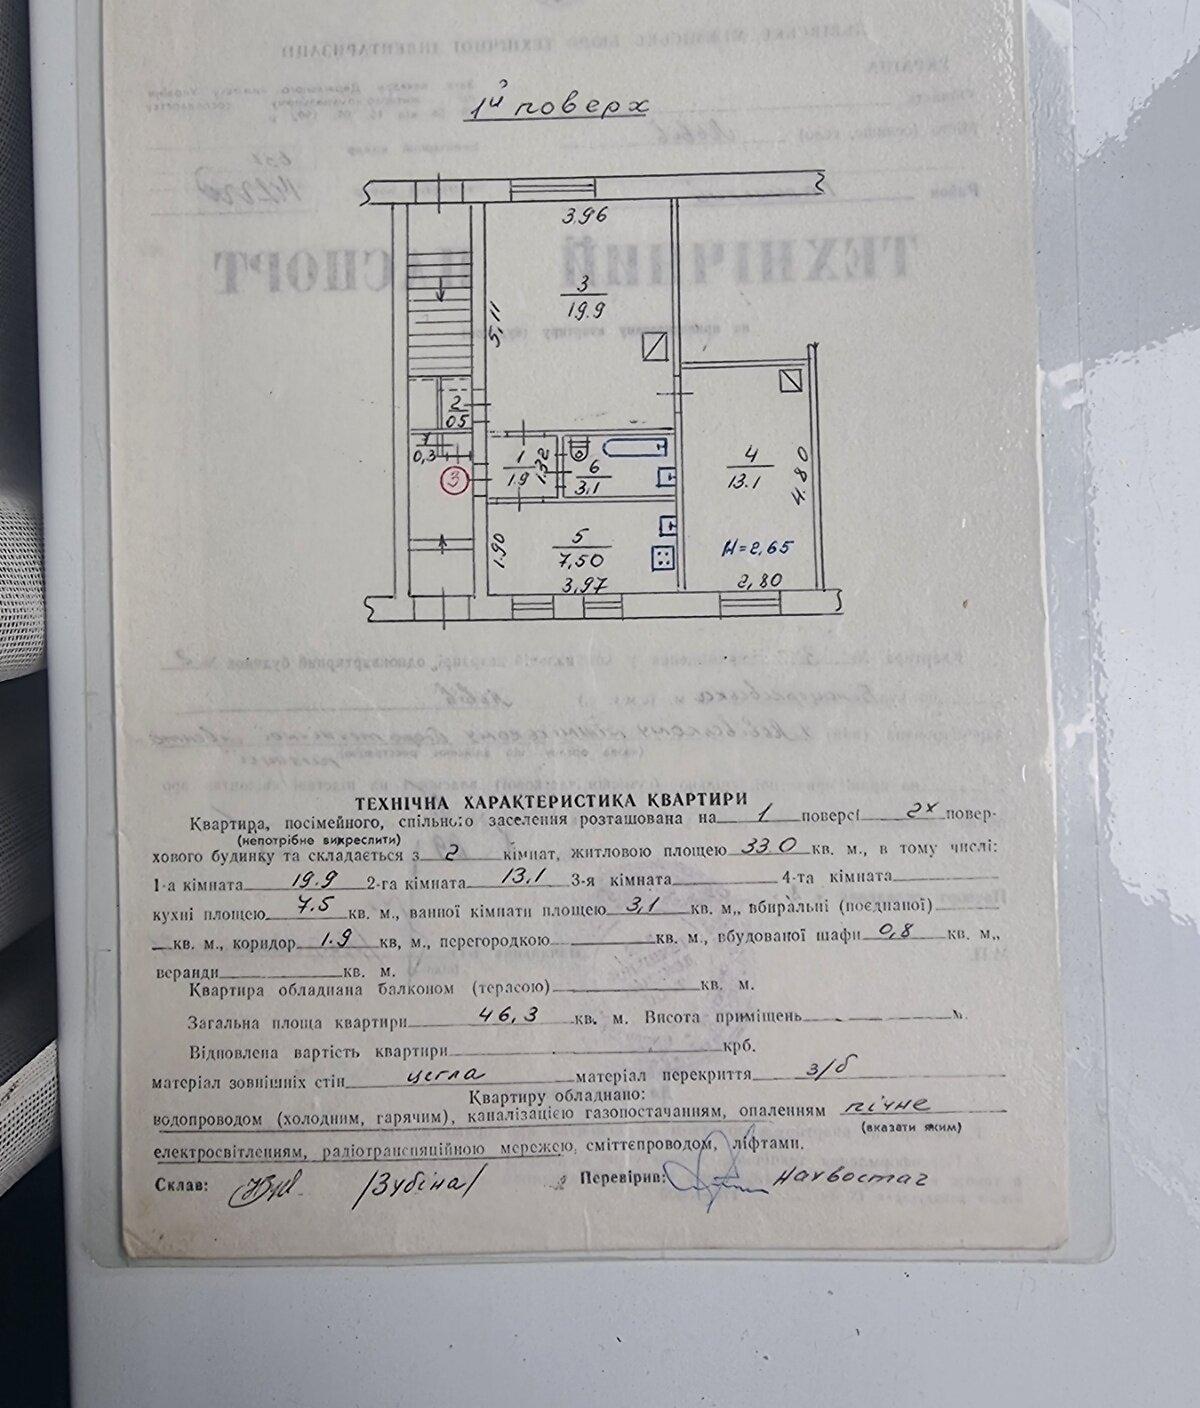 1й поверх
3.96
3
19.9
5,11
2
0,5
1
0,3
3
1
1.9
1.32
6
3.1
4
13.1
4.80
5
7,50
1.90
3,97
H=2,65
2,80
ТЕХНІЧНИЙ ПАСПОРТ
ТЕХНІЧНА ХАРАКТЕРИСТИКА КВАРТИРИ
Квартира, посімейного, спільного заселення розташована на 1 поверсі 2х повер-
(непотрібне викреслити)
хового будинку та складається з 2 кімнат, житловою площею 33.0 кв. м., в тому числі:
1-а кімната 19.9 2-га кімната 13,1 3-я кімната 4-та кімната
кухні площею 7.5 кв. м., ванної кімнати площею 3,1 кв. м,, вбиральні (поєднаної)
кв. м., коридор 1.9 кв, м., перегородкою кв. м., вбудованої шафи 0,8 кв. м,,
веранди кв. м.
Квартира обладнана балконом (терасою) кв. м.
Загальна площа квартири 46,3 кв. м. Висота приміщень м.
Відновлена вартість квартири крб.
матеріал зовнішніх стін цегла матеріал перекриття з/б
Квартиру обладнано:
водопроводом (холодним, гарячим), каналізацією газопостачанням, опаленням пічне
(вказати яким)
електросвітленням, радіотрансляційною мережею, сміттєпроводом, ліфтами.
Склав: /Зубіна/ Перевірив: Нахвостач